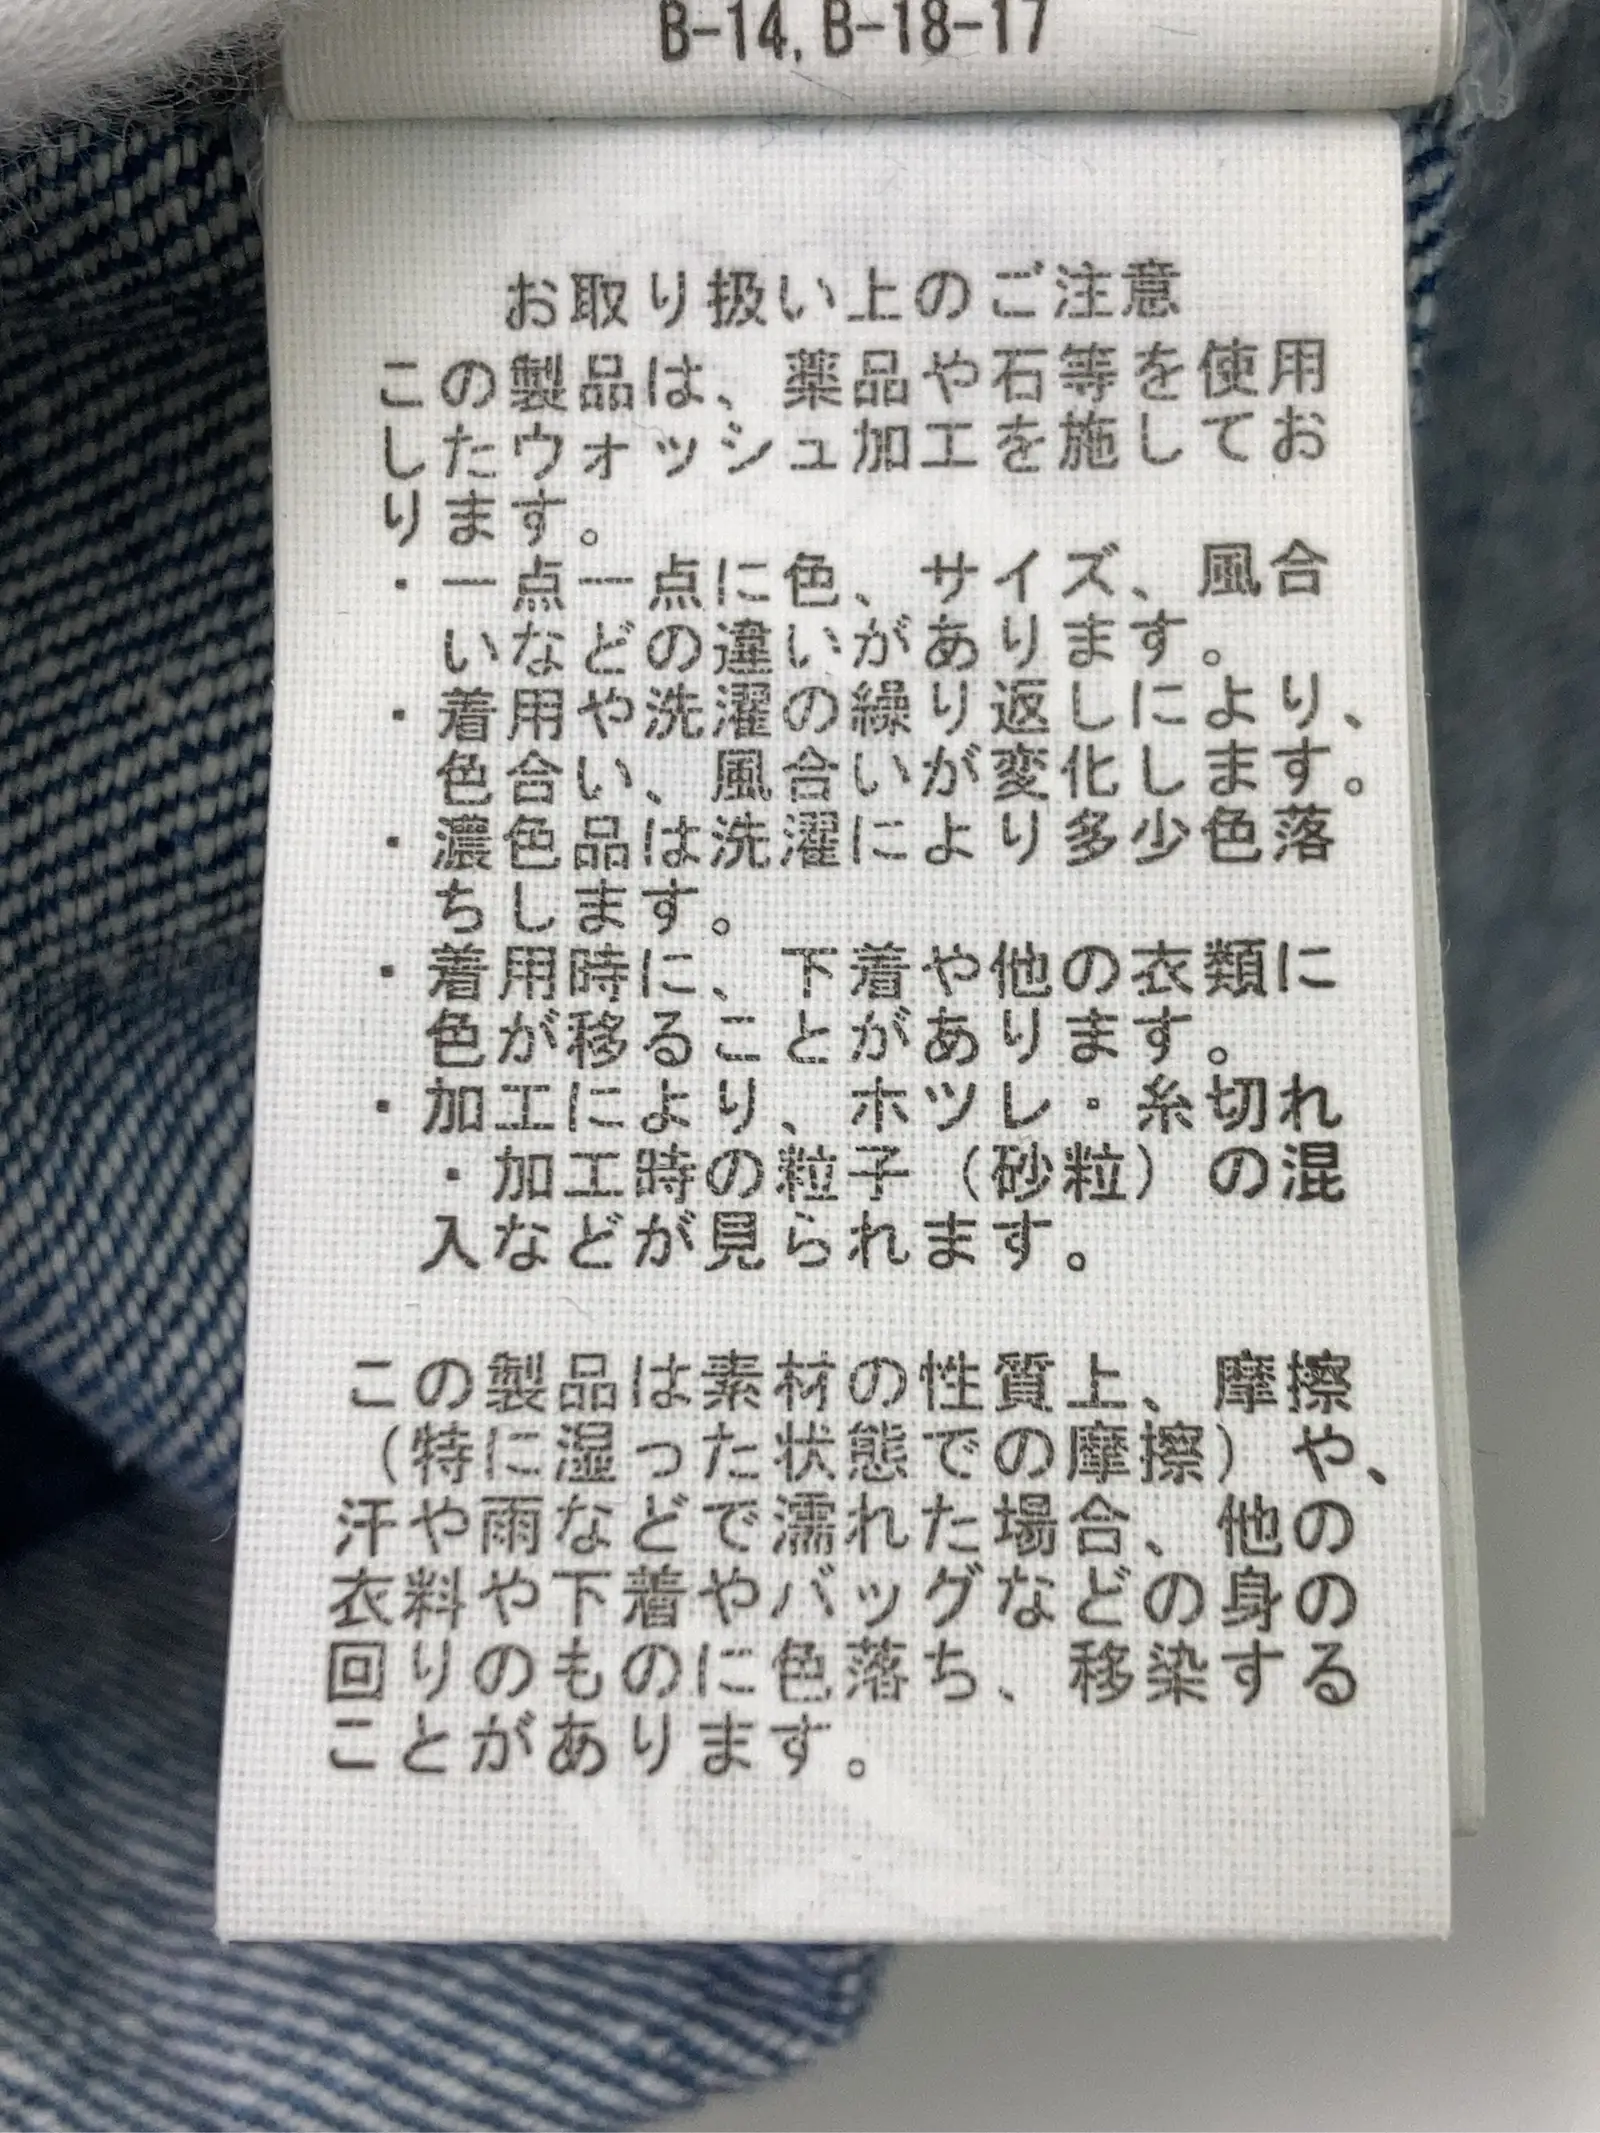 B-14, B-18-17
お取り扱い上のご注意
この製品は、薬品や石等を使用
したウォッシュ加工を施してお
ります。
・一点一点に色、サイズ、風合
いなどの違いがあります。
・着用や洗濯の繰り返しにより、
色合い、風合いが変化します。
・濃色品は洗濯により多少色落
ちします。
・着用時に、下着や他の衣類に
色が移ることがあります。
・加工により、ホツレ・糸切れ
・加工時の粒子（砂粒）の混
入などが見られます。
この製品は素材の性質上、摩擦
（特に湿った状態での摩擦）や、
汗や雨などで濡れた場合、他の
衣料や下着やバッグなどの身の
回りのものに色落ち、移染する
ことがあります。